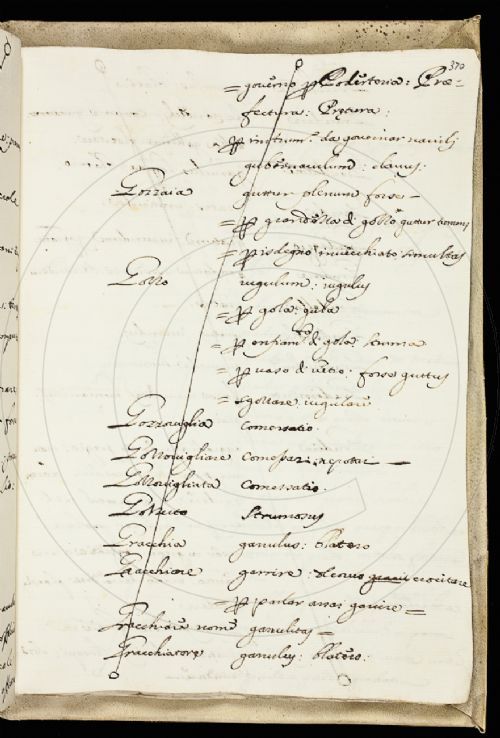 370
= governo p Podesteria: Præ-
fectura: Prætura:
p instrum.to da governar navilj
gubernaculum: clavus:
Gozzaia guttur plenum forse -
= p grandezza di gozzo guttur tumens
= p isdegno invecchiato simultas
Gozzo iugulum: iugulus
= p gola: gula
= p enfiam.to di gola: struma
= p vaso di vetro: forse guttus
= sgozzare iugulare
Gozzoviglia comessatio.
Gozzovigliare comessari: epotar
Gozzovigliata comessatio.
Gozzuto strumosus
Gracchia garrulus: blatero
Gracchiare garrire: di corvo crocitare
= p parlar assai garrire =
Gracchiare nome garrulitas =
Gracchiatore garrulus: blatero: